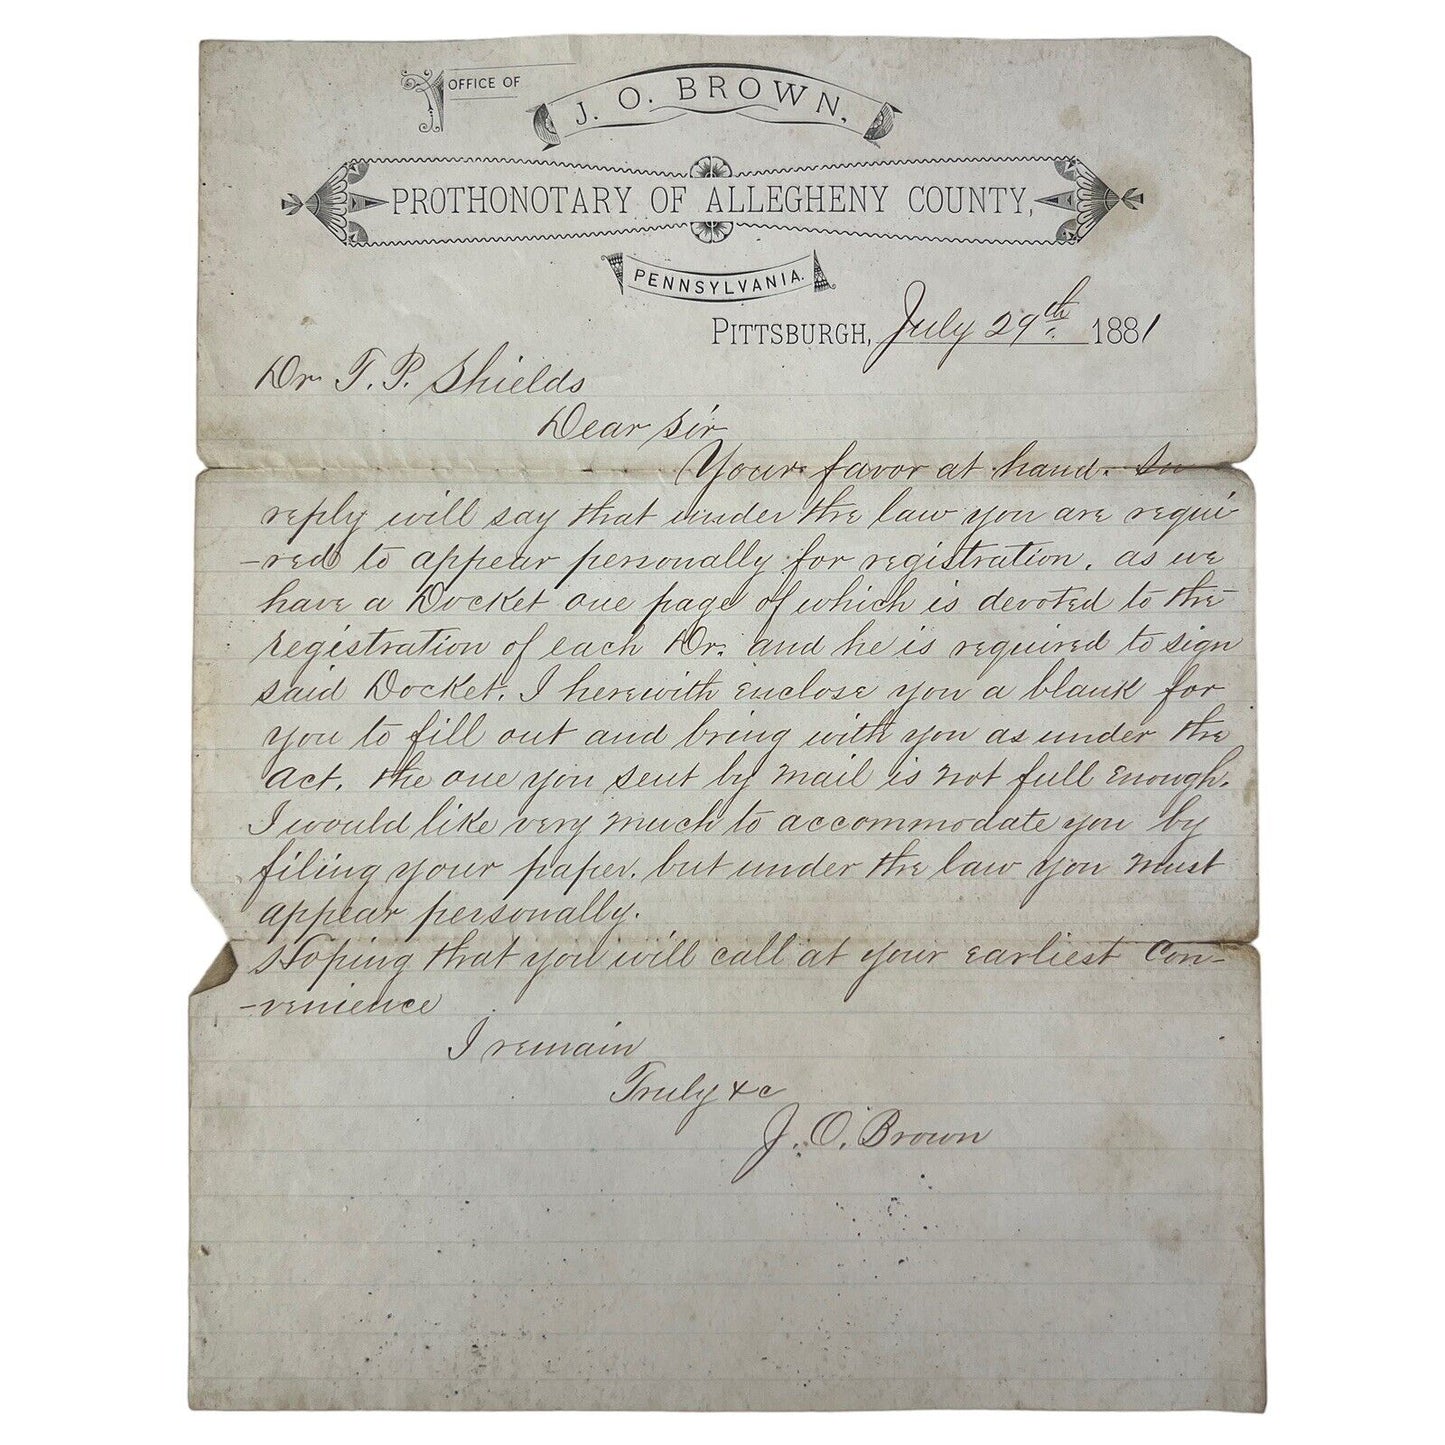 OFFICE OF
J. O. BROWN,
PROTHONOTARY OF ALLEGHENY COUNTY,
PENNSYLVANIA.
PITTSBURGH, July 29th 1881
Dr T. P. Shields
Dear Sir
Your favor at hand. In
reply will say that under the law you are requi-
-red to appear personally for registration. as we
have a Docket one page of which is devoted to the
registration of each Dr. and he is required to sign
said Docket. I herewith enclose you a blank for
you to fill out and bring with you as under the
act. the one you sent by mail is not full enough.
I would like very much to accommodate you by
filing your paper. but under the law you must
appear personally.
Hoping that you will call at your earliest Con-
-venience
I remain
Truly &c
J. O. Brown